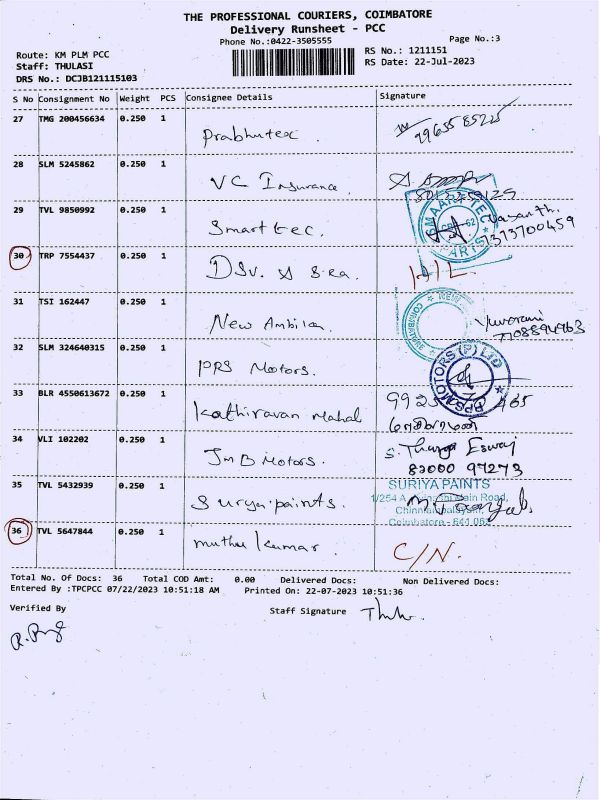 THE PROFESSIONAL COURIERS, COIMBATORE
Delivery Runsheet - PCC
Phone No.:0422-3505555
Page No.:3
Route: KM PLM PCC
RS No.: 1211151
Staff: THULASI
RS Date: 22-Jul-2023
DRS No.: DCJB121115103
S No Consignment No Weight PCS Consignee Details Signature
27 TMG 200456634 0.250 1 Prabhutex.
28 SLM 5245862 0.250 1 VC Insurance.
29 TVL 9850992 0.250 1 Smart tec. Vasanth.
7373700459
30 TRP 7554437 0.250 1 DSV. A Sea.
31 TSI 162447 0.250 1 New Ambika
NEW
COIMBATORE
32 SLM 324640315 0.250 1 PRS Motors.
MOTORS (P) LTD
33 BLR 4550613672 0.250 1 Kathiravan Mahal
34 VLI 102202 0.250 1 JMB Motors. S. Thanga Eswaj
82000 97273
35 TVL 5432939 0.250 1 Surya paints.
SURIYA PAINTS
Main Road,
Coimbatore - 641 062
36 TVL 5647844 0.250 1 muthu kumar C/N.
Total No. Of Docs: 36 Total COD Amt: 0.00 Delivered Docs: Non Delivered Docs:
Entered By :TPCPCC 07/22/2023 10:51:18 AM Printed On: 22-07-2023 10:51:36
Verified By Staff Signature